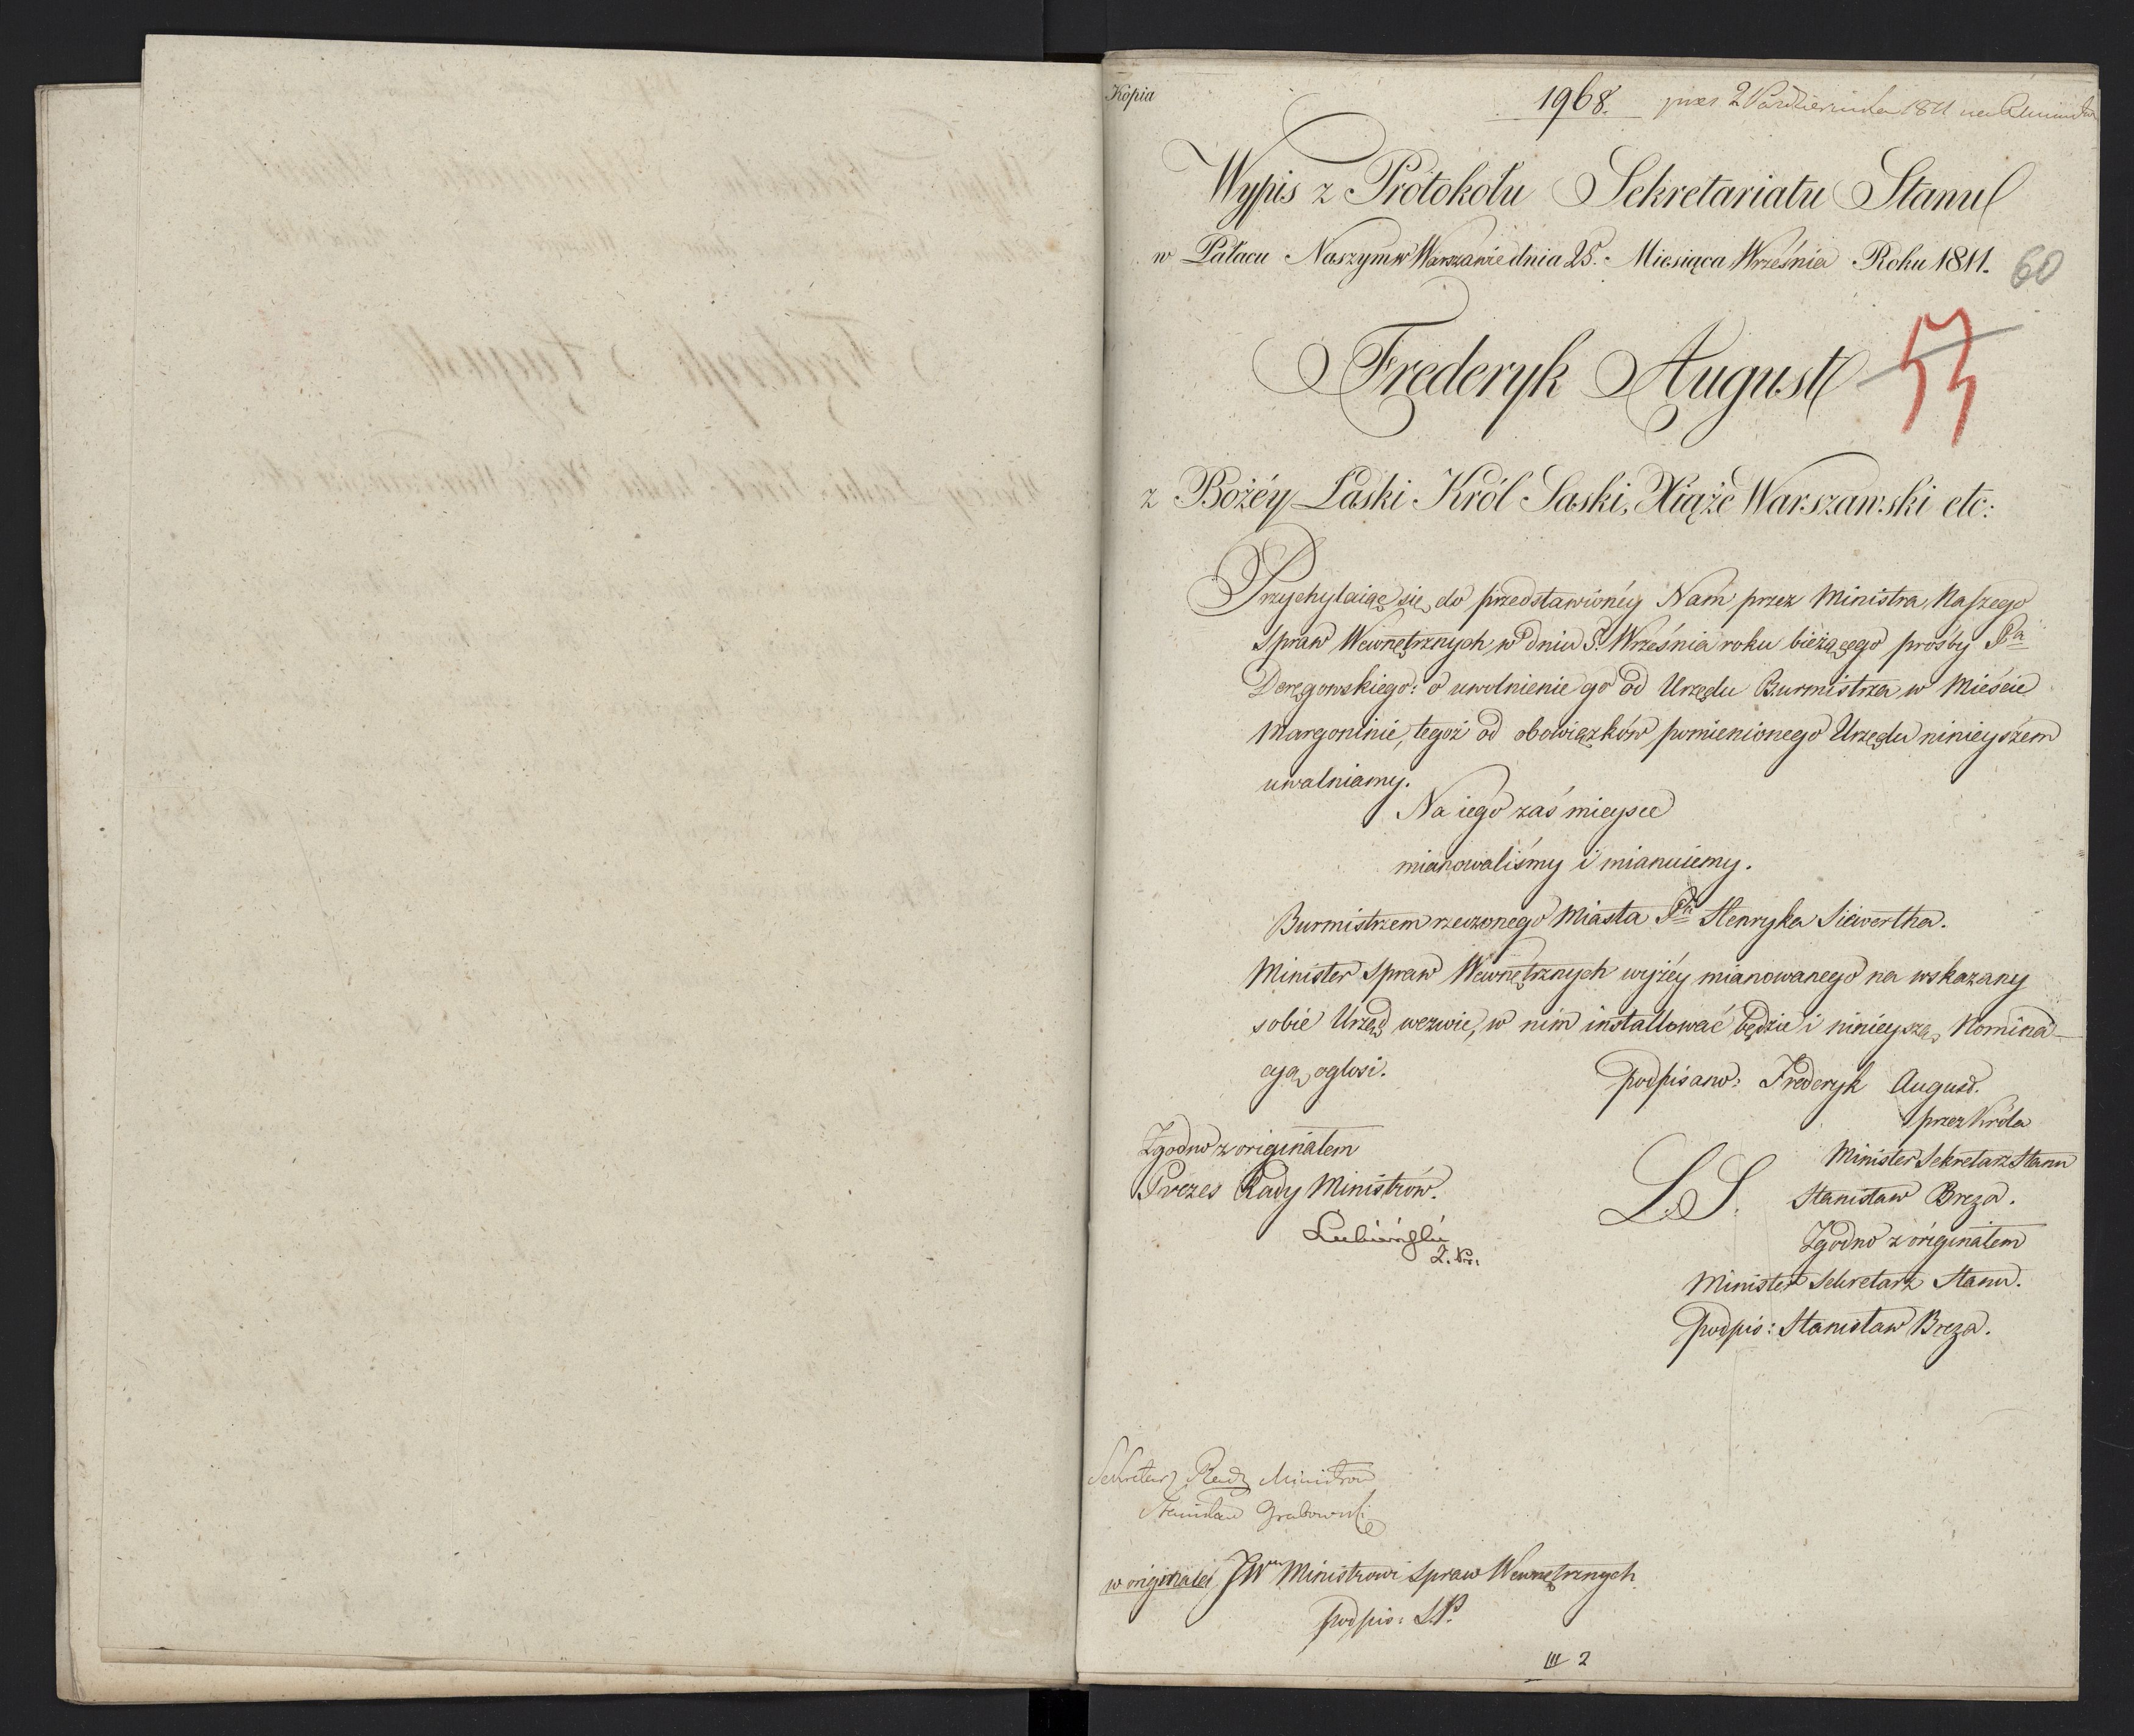 Kopia
1968. prez 2 Października 1811 na R
Wypis z Protokołu Sekretariatu Stanu
w Pałacu Naszym w Warszawie dnia 25. Miesiąca Września Roku 1811.
60
Frederyk August
57
z Bożéy Łaski Król Saski, Xiążę Warszawski etc:
Przychylaiąc się do przedstawionéy Nam przez Ministra Naszego
Spraw Wewnętrznych w dniu 5. Września roku bieżącego prośby Pa
Deręgowskiego: o uwolnienie go od Urzędu Burmistrza w Mieście
Margoninie, tegoż od obowiązków pomienionego Urzędu ninieyszém
uwalniamy.
Na iego zaś mieysce
mianowaliśmy i mianuiemy.
Burmistrzem rzeczonego Miasta Pa Henryka Siewertha.
Minister Spraw Wewnętrznych wyżéy mianowanego na wskazany
sobie Urząd wezwie, w nim installować będzie i ninieyszą Nomina-
cyą ogłosi.
podpisano: Frederyk August.
przez Króla
Minister Sekretarz Stanu
L.S. Stanisław Breza.
Zgodno z originałem
Minister Sekretarz Stanu.
podpis: Stanisław Breza.
Zgodno z originałem
Prezes Rady Ministrów.
Lubieński
Z. Pr.
Sekretarz Rady Ministrow
Stanisław Grabowski
w originale JWmu Ministrowi Spraw Wewnętrznych
podpis: S.P.
III 2